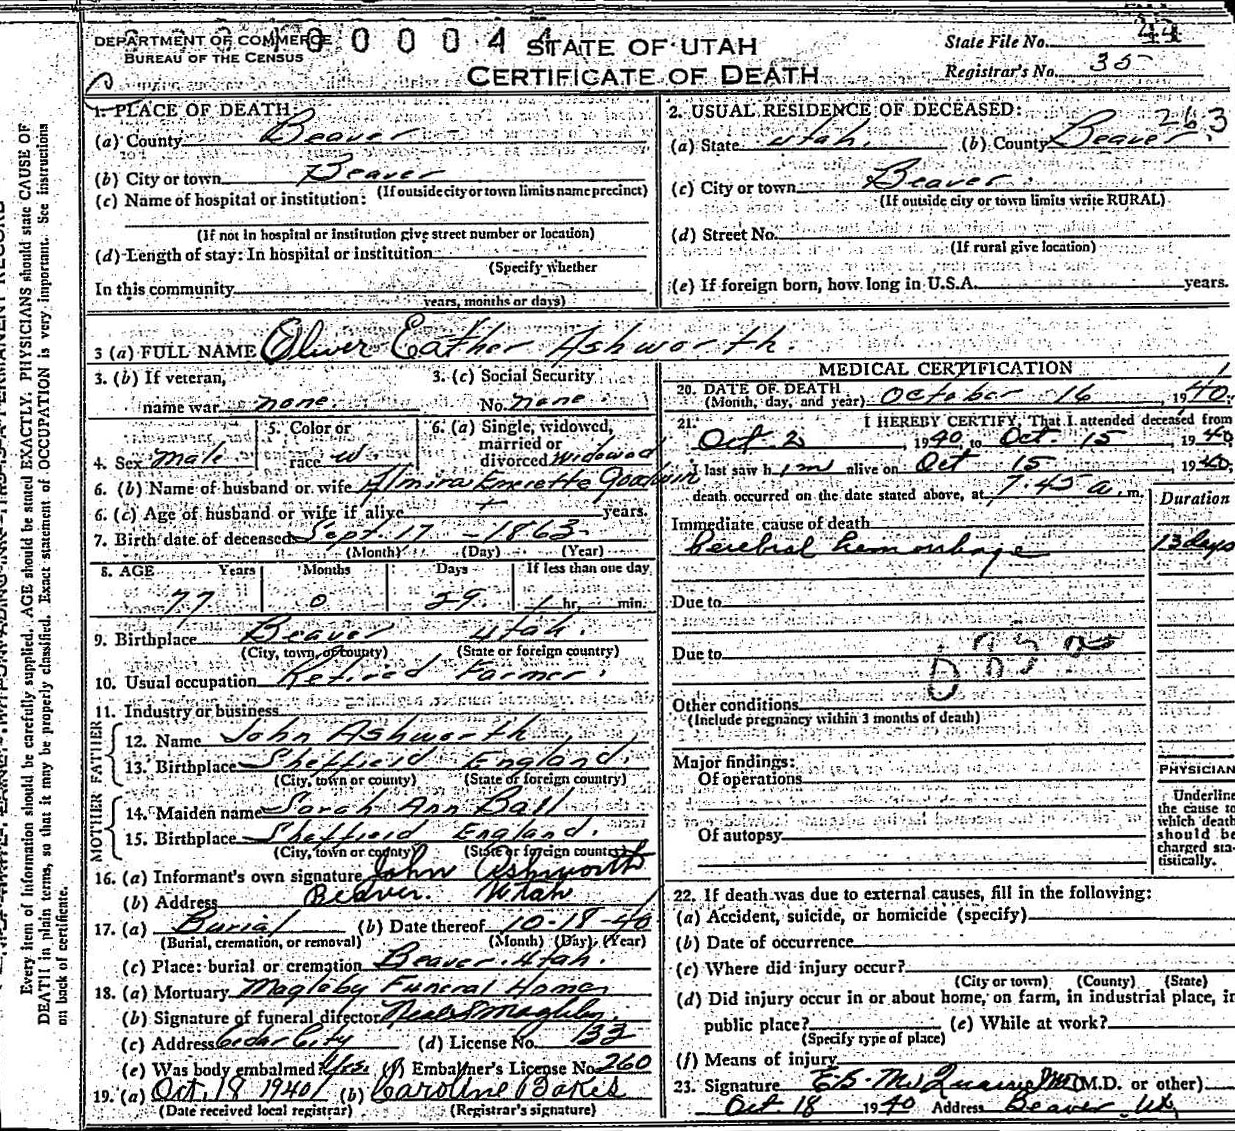 DEPARTMENT OF COMMERCE
BUREAU OF THE CENSUS
STATE OF UTAH
CERTIFICATE OF DEATH
State File No. 44
Registrar's No. 35
1. PLACE OF DEATH:
(a) County Beaver
(b) City or town Beaver
(If outside city or town limits name precinct)
(c) Name of hospital or institution:
(If not in hospital or institution give street number or location)
(d) Length of stay: In hospital or institution
(Specify whether
In this community
years, months or days)
2. USUAL RESIDENCE OF DECEASED:
263
(a) State Utah. (b) County Beaver.
(c) City or town Beaver.
(If outside city or town limits write RURAL)
(d) Street No.
(If rural give location)
(e) If foreign born, how long in U.S.A. years.
3 (a) FULL NAME Oliver Eather Ashworth.
3. (b) If veteran,
name war none
3. (c) Social Security
No. none
4. Sex Male
5. Color or
race W
6. (a) Single, widowed,
married or
divorced Widowed
6. (b) Name of husband or wife Almira Enerette Goodwin
6. (c) Age of husband or wife if alive years.
7. Birth date of deceased Sept. 17 - 1863
(Month) (Day) (Year)
8. AGE Years Months Days If less than one day
77 0 29 hr. min.
9. Birthplace Beaver Utah.
(City, town, or county) (State or foreign country)
10. Usual occupation Retired Farmer.
11. Industry or business
FATHER
12. Name John Ashworth
13. Birthplace Sheffield England.
(City, town or county) (State or foreign country)
MOTHER
14. Maiden name Sarah Ann Ball
15. Birthplace Sheffield England.
(City, town or county) (State or foreign country)
16. (a) Informant's own signature John Ashworth
(b) Address Beaver. Utah
17. (a) Burial (b) Date thereof 10-18-40
(Burial, cremation, or removal) (Month) (Day) (Year)
(c) Place: burial or cremation Beaver. Utah.
18. (a) Mortuary Magleby Funeral Home
(b) Signature of funeral director Neal S Magleby.
(c) Address Cedar City (d) License No. 132
(e) Was body embalmed? Yes. (f) Embalmer's License No. 260
19. (a) Oct. 18 1940 (b) Caroline Bakes
(Date received local registrar) (Registrar's signature)
MEDICAL CERTIFICATION
20. DATE OF DEATH
(Month, day, and year) October 16, 1940.
21. I HEREBY CERTIFY, That I attended deceased from
Oct. 2 1940, to Oct. 15 1940
I last saw him alive on Oct 15 1940;
death occurred on the date stated above, at 7.45 a. m.
Duration
Immediate cause of death
Cerebral hemorrhage 13 days
Due to
Due to
Other conditions
(Include pregnancy within 3 months of death)
Major findings:
Of operations
Of autopsy
PHYSICIAN
Underline
the cause to
which death
should be
charged sta-
tistically.
22. If death was due to external causes, fill in the following:
(a) Accident, suicide, or homicide (specify)
(b) Date of occurrence
(c) Where did injury occur?
(City or town) (County) (State)
(d) Did injury occur in or about home, on farm, in industrial place, in
public place? (e) While at work?
(Specify type of place)
(f) Means of injury
23. Signature (M.D. or other)
Oct. 18 1940 Address Beaver, Ut.
Every item of information should be carefully supplied. AGE should be stated EXACTLY. PHYSICIANS should state CAUSE OF
DEATH in plain terms, so that it may be properly classified. Exact statement of OCCUPATION is very important. See instructions
on back of certificate.